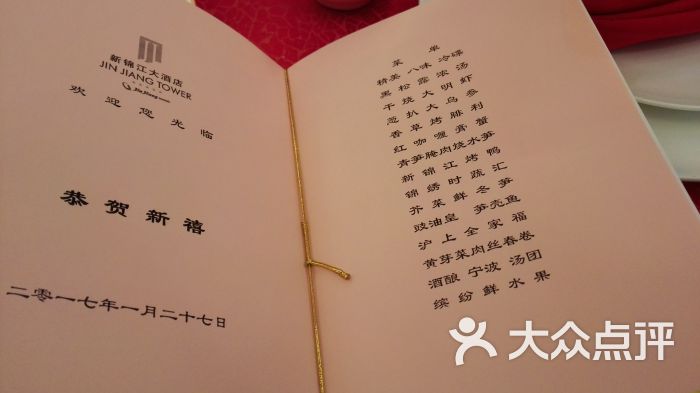 新锦江大酒店
JIN JIANG TOWER
Jin Jiang
欢迎您光临
恭贺新禧
二零一七年一月二十七日
菜单
精美八味冷碟
黑松露浓汤
干烧大明虾
葱扒大乌参
香草烤腓利
红咖喱膏蟹
青笋腌肉烧水笋
新锦江烤鸭
锦绣时蔬汇
芥菜鲜冬笋
豉油皇 笋壳鱼
沪上全家福
黄芽菜肉丝春卷
酒酿宁波汤团
缤纷鲜水果
大众点评